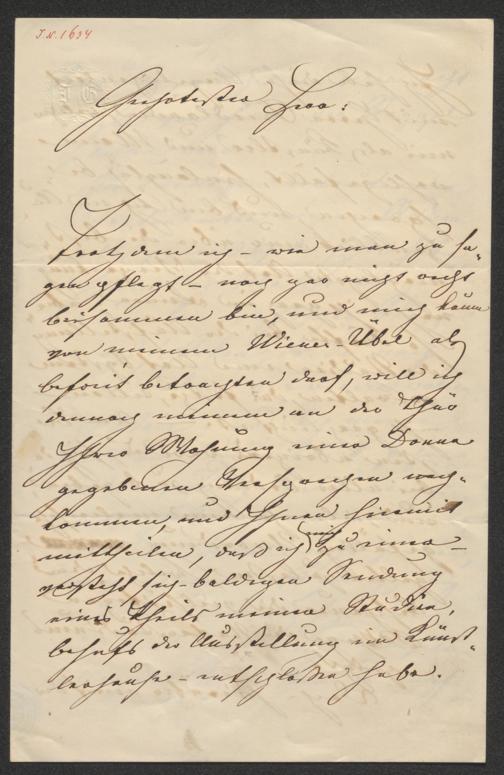 J.N. 1634
Geehrtester Herr:
Trotzdem ich – wie man zu sa-
gen pflegt – noch gar nicht recht
beisammen bin, und mich kaum
von meinem Wiener-Übel als
befreit betrachten darf, will ich
dennoch meinem an der Thür
Ihrer Wohnung einer Donna
gegebenen Versprechen nach-
kommen, und Ihnen hiemit
mittheilen, daß ich mich zu einer –
versteht sich – baldigen Sendung
eines Theils meiner Studien,
behufs der Ausstellung im Künst-
lerhause – entschlossen habe.